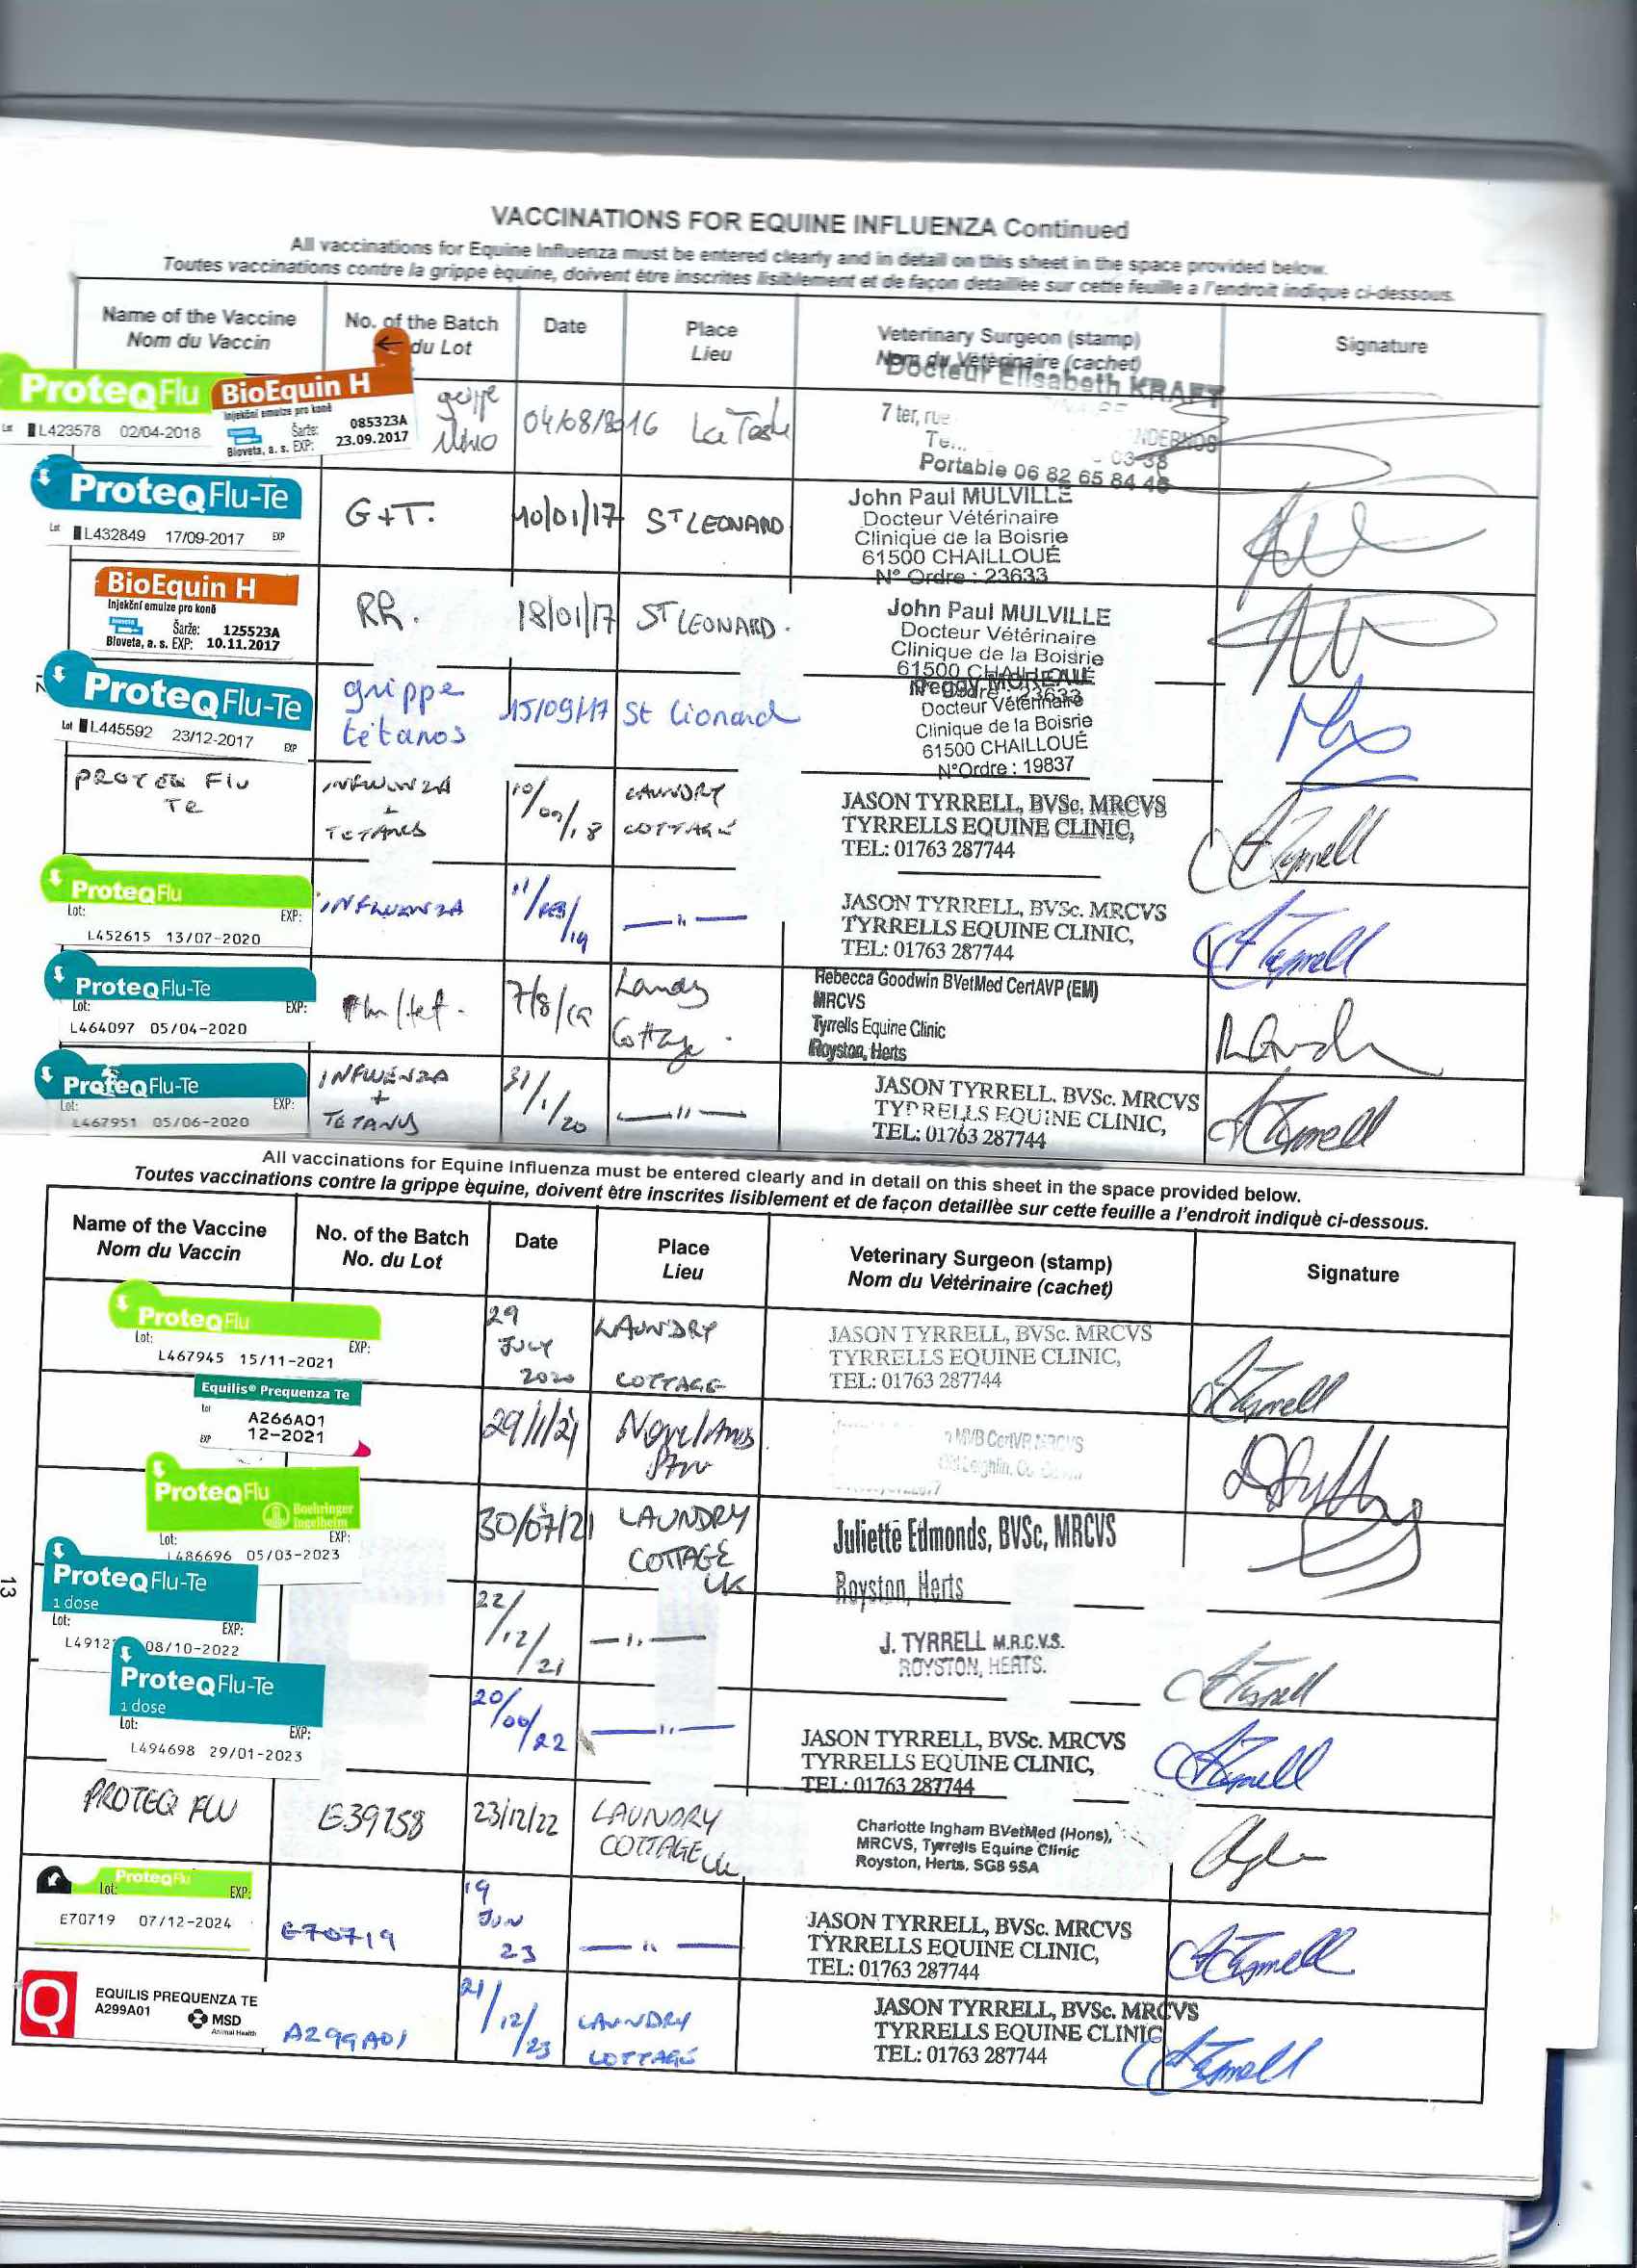 VACCINATIONS FOR EQUINE INFLUENZA Continued
All vaccinations for Equine Influenza must be entered clearly and in detail on this sheet in the space provided below.
Toutes vaccinations contre la grippe èquine, doivent ètre inscrites lisiblement et de façon detaillèe sur cette feuille a l'endroit indiquè ci-dessous.
Name of the Vaccine
Nom du Vaccin
No. of the Batch
du Lot
Date
Place
Lieu
Veterinary Surgeon (stamp)
Nom du Vetèrinaire (cachet)
Signature
ProteqFlu
L423578 02/04-2018
BioEquin H
Injekční emulze pro koně
Šarže: 085323A
Bioveta, a. s. EXP: 23.09.2017
04/08/2016
Docteur Elisabeth KRAFT
7 ter, rue
Portable 06 82 65 84 46
ProteqFlu-Te
Lot L432849 17/09-2017 EXP
G+T.
10/01/17
ST LEONARD
John Paul MULVILLE
Docteur Vétérinaire
Clinique de la Boisrie
61500 CHAILLOUÉ
N° Ordre : 23633
BioEquin H
Injekční emulze pro koně
Šarže: 125523A
Bioveta, a. s. EXP: 10.11.2017
RR.
18/01/17
ST LEONARD.
John Paul MULVILLE
Docteur Vétérinaire
Clinique de la Boisrie
61500 CHAILLOUÉ
N° Ordre : 23633
ProteqFlu-Te
Lot L445592 23/12-2017 EXP
grippe
tétanos
15/09/17
St Lionard
Peggy MOREAUE
Docteur Vétérinaire
Clinique de la Boisrie
61500 CHAILLOUÉ
N°Ordre : 19837
PROTEQ FLU
TE
INFLUENZA
+
TETANUS
10/09/18
LAUNDRY
COTTAGE
JASON TYRRELL, BVSc. MRCVS
TYRRELLS EQUINE CLINIC,
TEL: 01763 287744
ProteqFlu
Lot: EXP:
L452615 13/07-2020
INFLUENZA
— " —
JASON TYRRELL, BVSc. MRCVS
TYRRELLS EQUINE CLINIC,
TEL: 01763 287744
ProteqFlu-Te
Lot: EXP:
L464097 05/04-2020
Flu/tet.
7/8/19
Cottage.
Rebecca Goodwin BVetMed CertAVP (EM)
MRCVS
Tyrrells Equine Clinic
Royston, Herts
ProteqFlu-Te
Lot: EXP:
L467951 05/06-2020
INFLUENZA
+
TETANUS
31/1/20
— " —
JASON TYRRELL. BVSc. MRCVS
TYRRELLS EQUINE CLINIC,
TEL: 01763 287744
All vaccinations for Equine Influenza must be entered clearly and in detail on this sheet in the space provided below.
Toutes vaccinations contre la grippe èquine, doivent ètre inscrites lisiblement et de façon detaillèe sur cette feuille a l'endroit indiquè ci-dessous.
Name of the Vaccine
Nom du Vaccin
No. of the Batch
No. du Lot
Date
Place
Lieu
Veterinary Surgeon (stamp)
Nom du Vetèrinaire (cachet)
Signature
ProteqFlu
Lot: EXP:
L467945 15/11-2021
29
JULY
2020
LAUNDRY
COTTAGE
JASON TYRRELL, BVSc. MRCVS
TYRRELLS EQUINE CLINIC,
TEL: 01763 287744
Equilis® Prequenza Te
lot A266A01
EXP 12-2021
29/1/21
MVB CertVR MRCVS
Old Leighlin, Co.
ProteqFlu
Boehringer
Ingelheim
Lot: EXP:
L486696 05/03-2023
30/07/21
LAUNDRY
COTTAGE
UK
Juliette Edmonds, BVSc, MRCVS
Royston, Herts
13
ProteqFlu-Te
1 dose
Lot: EXP:
L4912 08/10-2022
22/12/21
— " —
J. TYRRELL M.R.C.V.S.
ROYSTON, HERTS.
ProteqFlu-Te
1 dose
Lot: EXP:
L494698 29/01-2023
20/06/22
— " —
JASON TYRRELL, BVSc. MRCVS
TYRRELLS EQUINE CLINIC,
TEL: 01763 287744
PROTEQ FLU
E39758
23/12/22
LAUNDRY
COTTAGE UK
Charlotte Ingham BVetMed (Hons),
MRCVS, Tyrrells Equine Clinic
Royston, Herts, SG8 9SA
ProteqFlu
Lot: EXP:
E70719 07/12-2024
E70719
19
JUN
23
— " —
JASON TYRRELL, BVSc. MRCVS
TYRRELLS EQUINE CLINIC,
TEL: 01763 287744
Q
EQUILIS PREQUENZA TE
A299A01
MSD
Animal Health
A299A01
21/12/23
LAUNDRY
COTTAGE
JASON TYRRELL, BVSc. MRCVS
TYRRELLS EQUINE CLINIC
TEL: 01763 287744